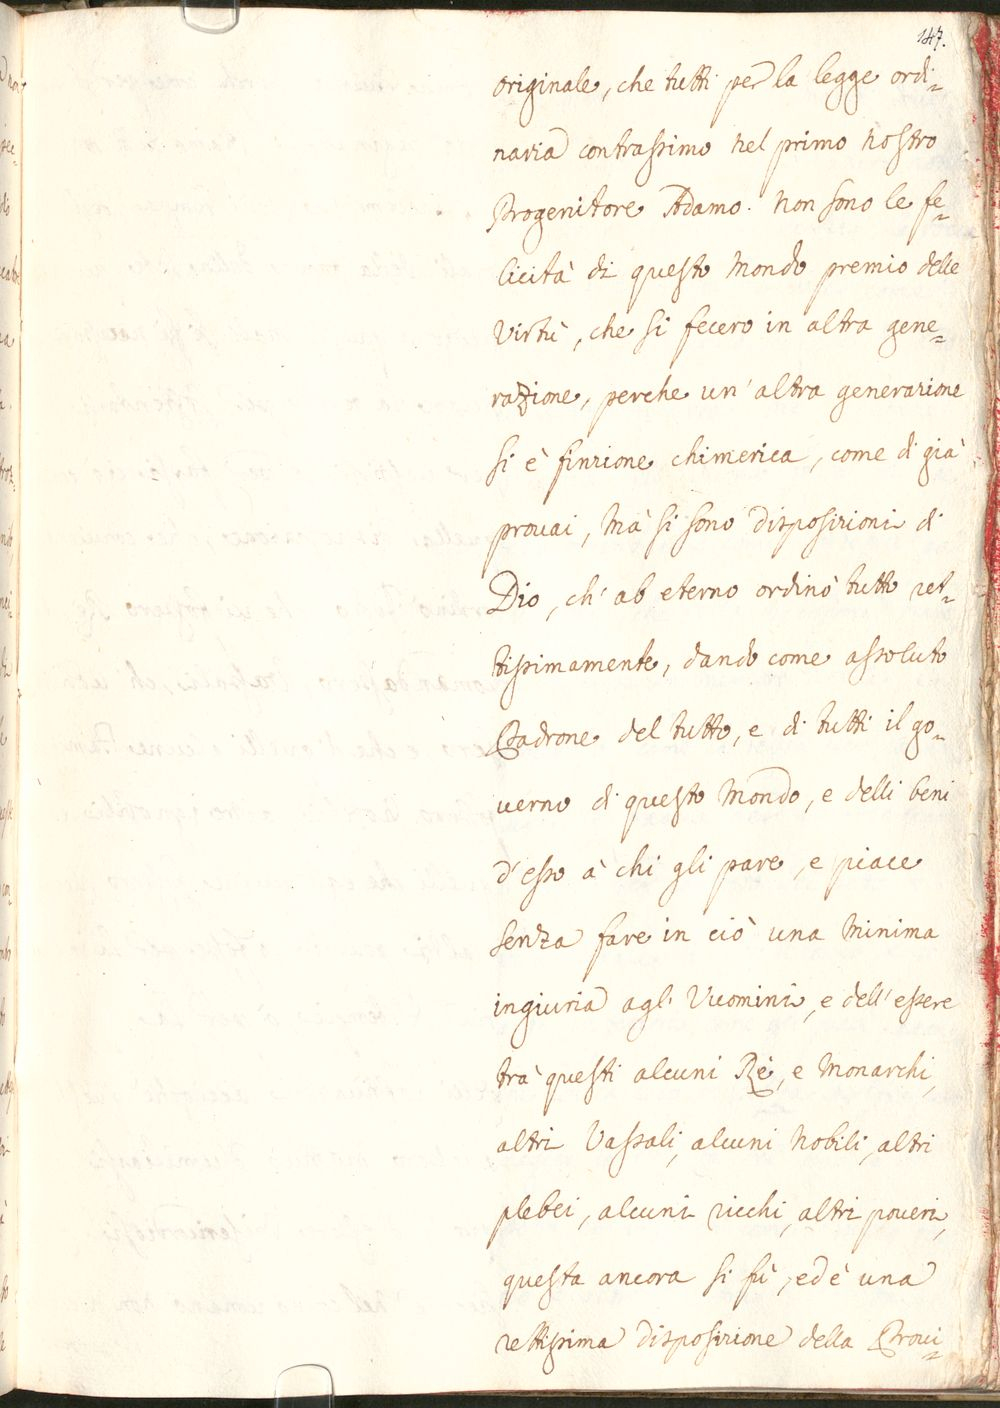 147.
originale, che tutti per la legge ordi=
naria contrassimo nel primo nostro
Progenitore Adamo. Non sono le fe=
licità di questo Mondo premio delle
Virtù, che si fecero in altra gene=
razione, perche un' altra generazione
si è finzione chimerica, come di già
prouai, mà si sono disposizioni di
Dio, ch' ab eterno ordinò tutto ret=
tissimamente, dando come assoluto
Padrone del tutto, e di tutti il go=
uerno di questo Mondo, e delli beni
d'esso à chi gli pare, e piace
senza fare in ciò una minima
ingiuria agl' Vuomini, e dell' essere
trà questi alcuni Rè, e Monarchi,
altri Vassali, alcuni Nobili, altri
plebei, alcuni ricchi, altri poueri,
questa ancora si fù, ed è una
rettissima disposizione della Proui=